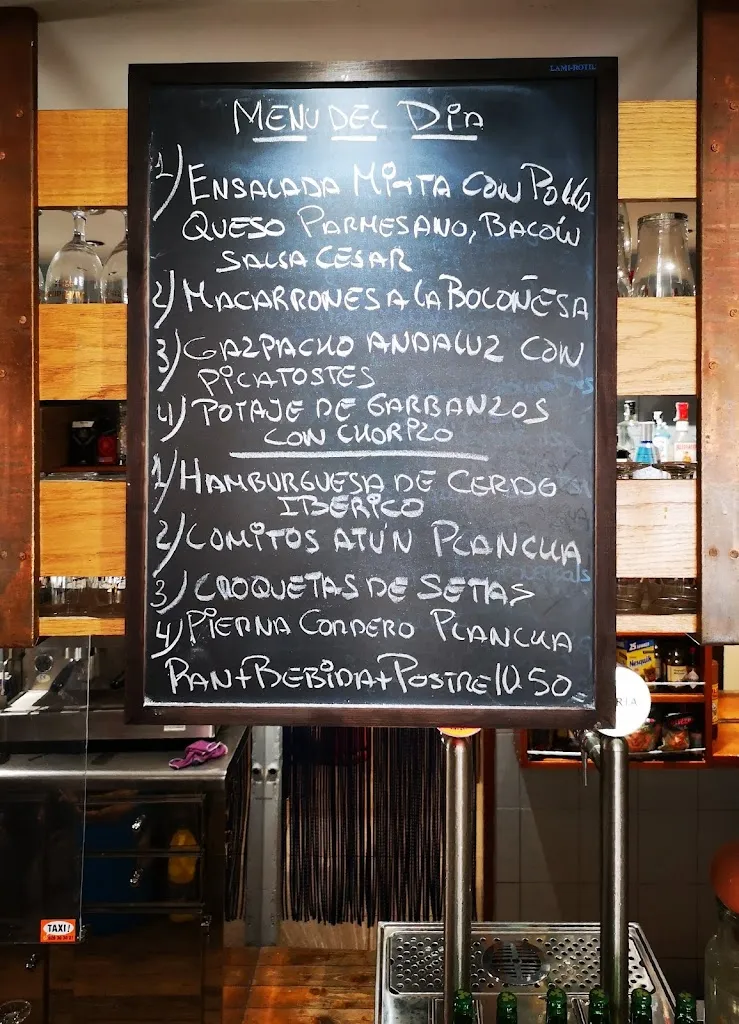 LAMI-ROTR.
MENU DEL DIA
1) ENSALADA MIXTA CON POLLO
QUESO PARMESANO, BACÓN
SALSA CESAR
2) MACARRONES A LA BOLOÑESA
3) GAZPACHO ANDALUZ CON
PICATOSTES
4) POTAJE DE GARBANZOS
CON CHORIZO
1) HAMBURGUESA DE CERDO
IBERICO
2) LOMITOS ATÚN PLANCHA
3) CROQUETAS DE SETAS
4) PIERNA CORDERO PLANCHA
PAN+BEBIDA+POSTRE 10 50
RIA
25
Nesquik
TAXI!